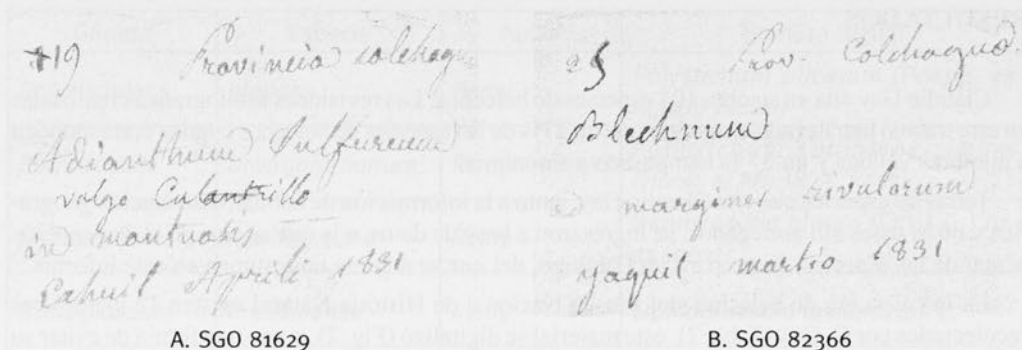 719 Provincia colchagu
Adianthum Sulfureum
vulgo Culantrillo
in montuosis
Cahuil Aprili 1831
A. SGO 81629
25 Prov. Colchagua
Blechnum
a margines rivulorum
yaquil martio 1831
B. SGO 82366